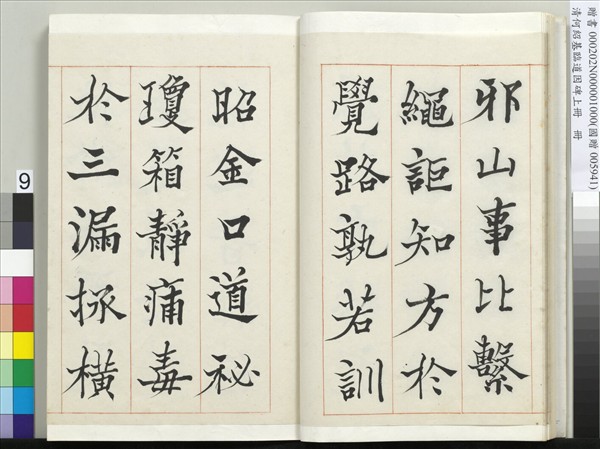 邪山事比繫
繩詎知方於
覺路孰若訓
昭金口道祕
瓊箱靜痛毒
於三漏拯橫
贈書 000202N000001000(國贈 005941)
清何紹基臨道因碑上冊 冊
9